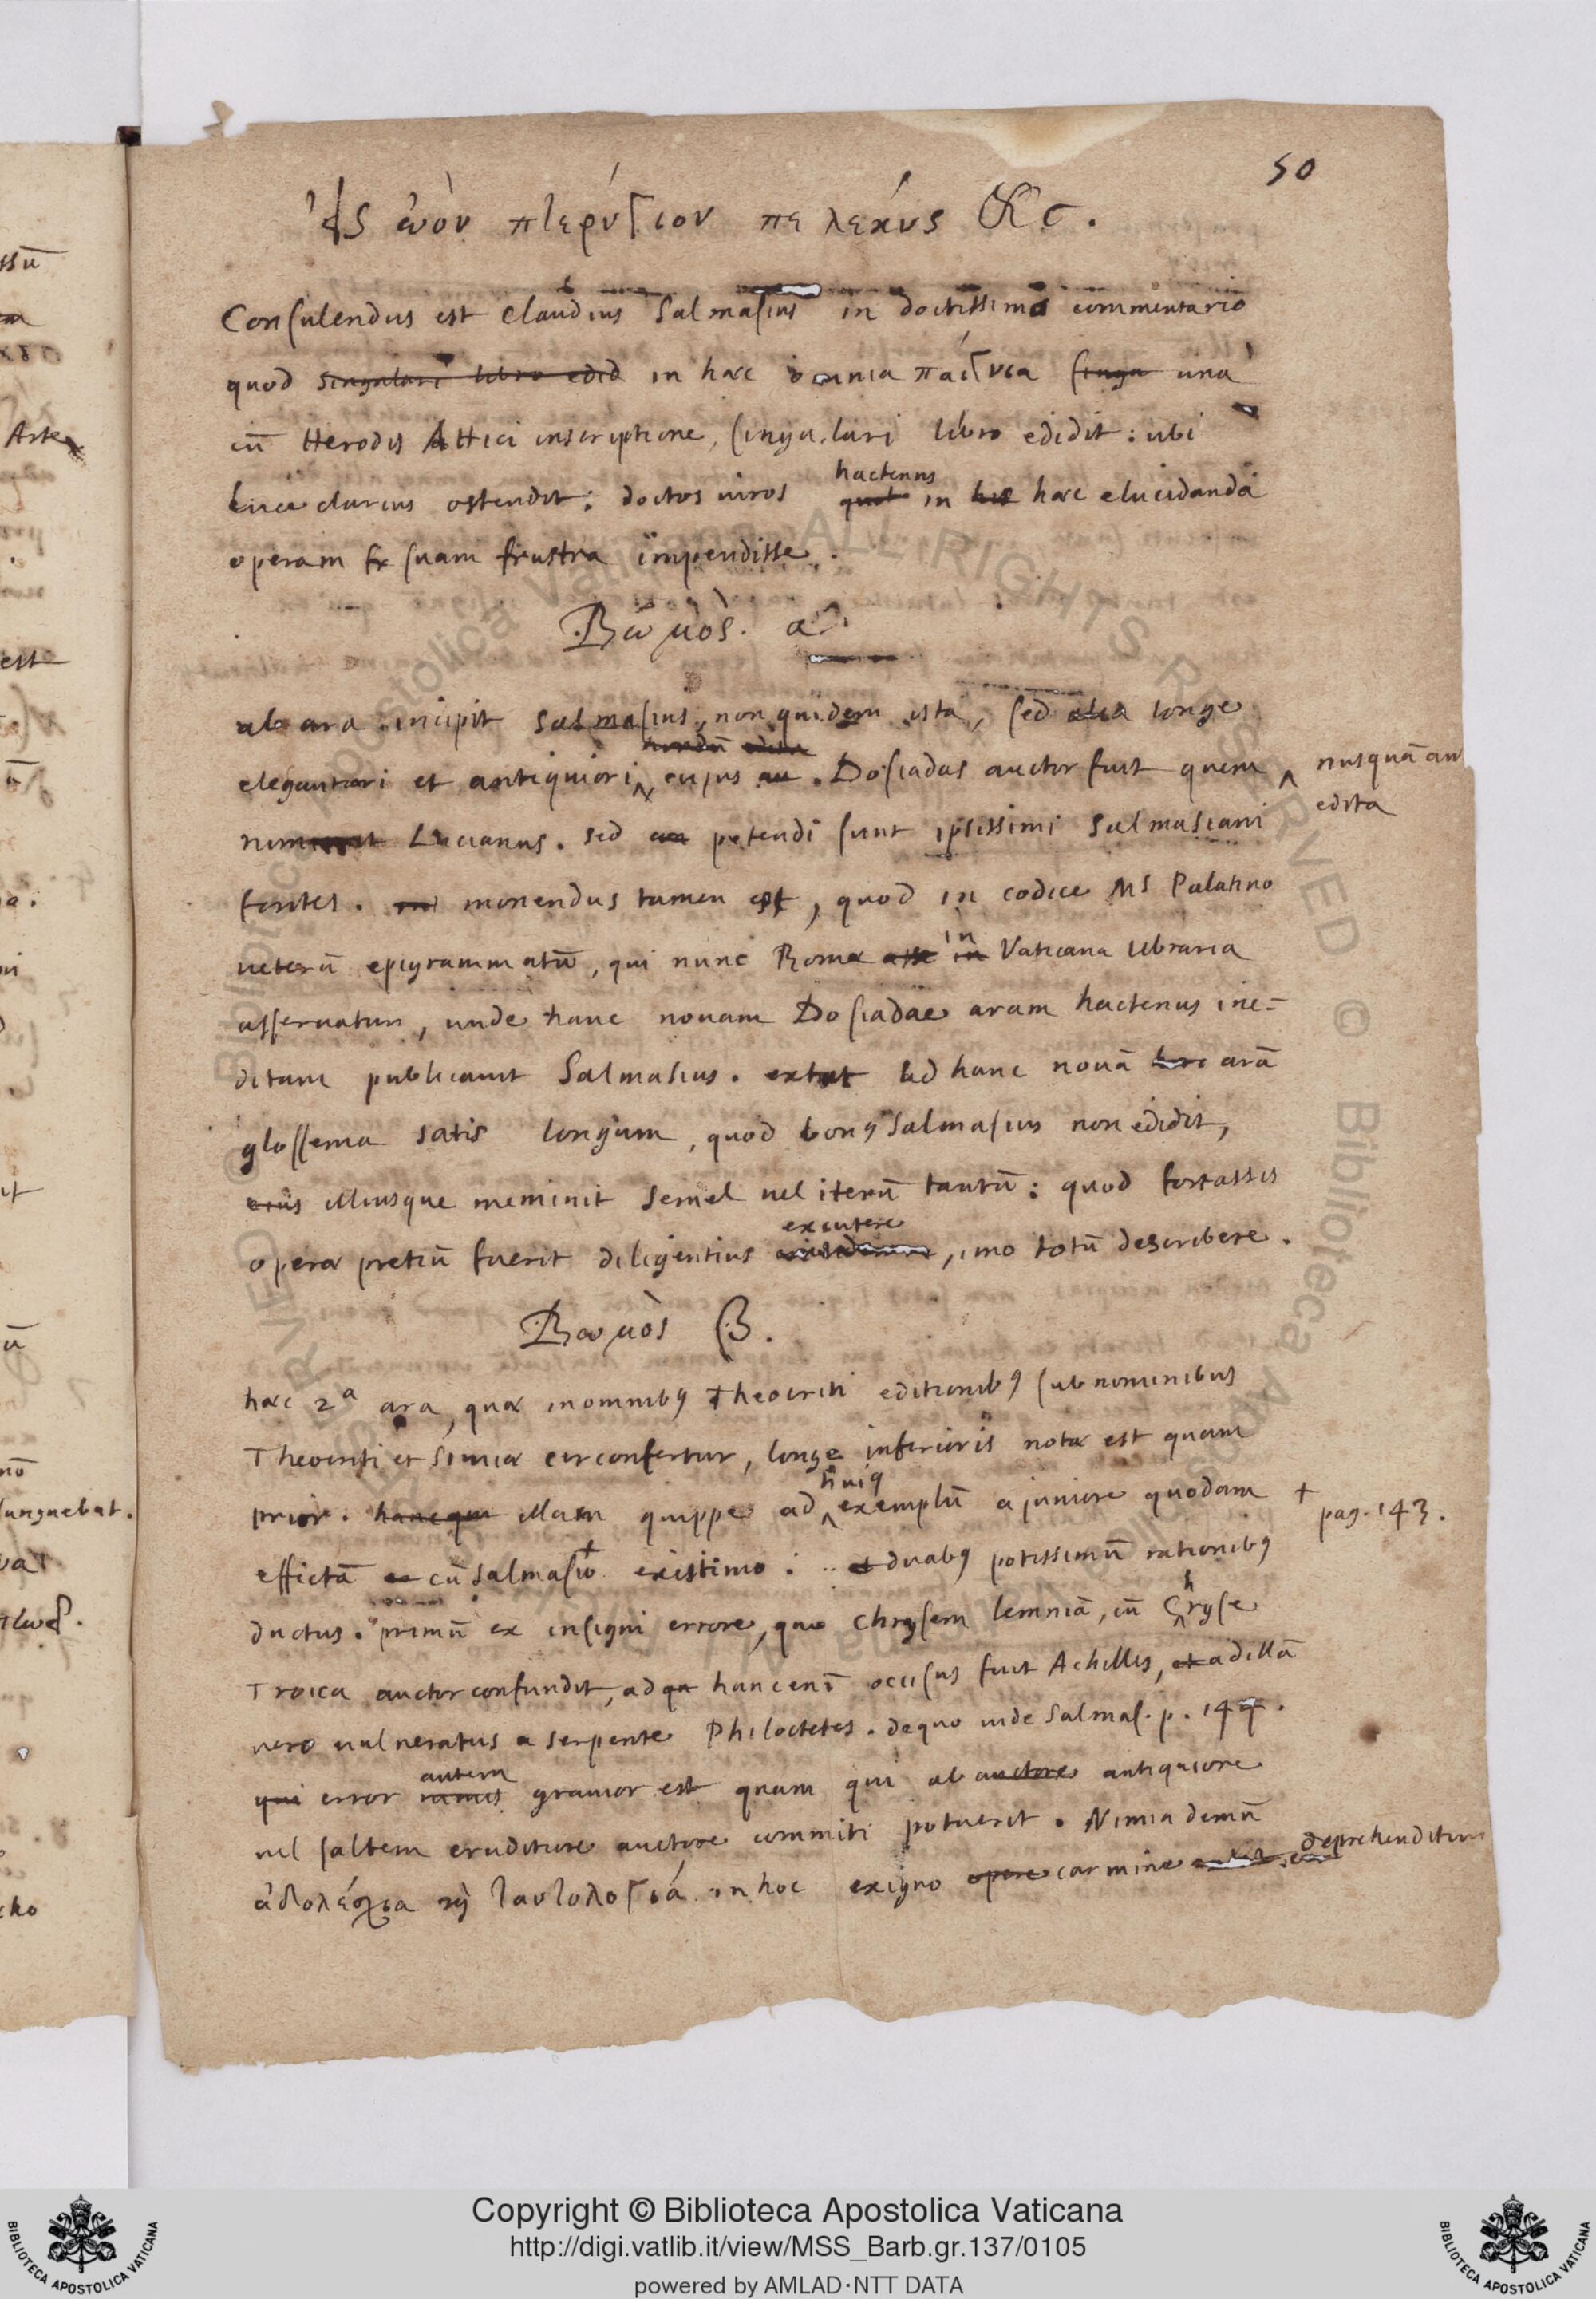 50
Εἰς ὠὸν πτερύγιον πελεκύς &c.
Consulendus est Claudius Salmasius in doctissimo commentario
quod singulari libro edid in hæc omnia παίγνια singu unà
cū Herodis Attici inscriptione, singulari libro edidit: ubi
luce clarius ostendit: doctos viros hactenus in hæc elucidanda
operam suam frustra impendisse.
Βωμὸς. α
ab ara incipit Salmasius, non quidem ista, sed alia longe
elegantiori et antiquiori, cujus au. Dosiadas auctor fuit quem nusquā an
edita
Lucianus. sed petendi sunt ipsissimi Salmasiani
fontes. monendus tamen est, quod in codice MS Palatino
veterū epigrammatū, qui nunc Romæ in Vaticana libraria
asservatur, unde hanc novam Dosiadae aram hactenus ine-
ditam publicavit Salmasius. extat ad hanc novā arā
glossema satis longum, quod bonꝰ Salmasius non edidit,
eius illiusque meminit semel vel iterū tantū: quod fortassis
operæ pretiū fuerit diligentius excutere, imo totū describere.
Βωμὸς β.
hæc 2ª ara, quæ in omnibꝰ Theocriti editionibꝰ sub nominibus
Theocriti et Simiæ circonfertur, longe inferioris notæ est quam
prior. hanc qu illam quippe ad huiꝰ exemplū a juniore quodam + pag. 143.
effictā cū Salmasio + existimo: et duabꝰ potissimū rationibꝰ
ductus. primū ex insigni errore, quo Chrysem lemniā, cū Chryse
Troica auctor confundit, ad hanc enī occisus fuit Achilles, et ad illā
vero vulneratus a serpente Philoctetes. de quo vide Salmas. p. 144.
qui error autem gravior est quam qui ab auctore antiquiore
vel saltem eruditiore auctore committi potuerit. Nimia demū
ἀδολέσχια καὶ ταυτολογία in hoc exiguo opere carmine deprehenditur
Copyright © Biblioteca Apostolica Vaticana
http://digi.vatlib.it/view/MSS_Barb.gr.137/0105
powered by AMLAD·NTT DATA
BIBLIOTECA APOSTOLICA VATICANA
BIBLIOTECA APOSTOLICA VATICANA